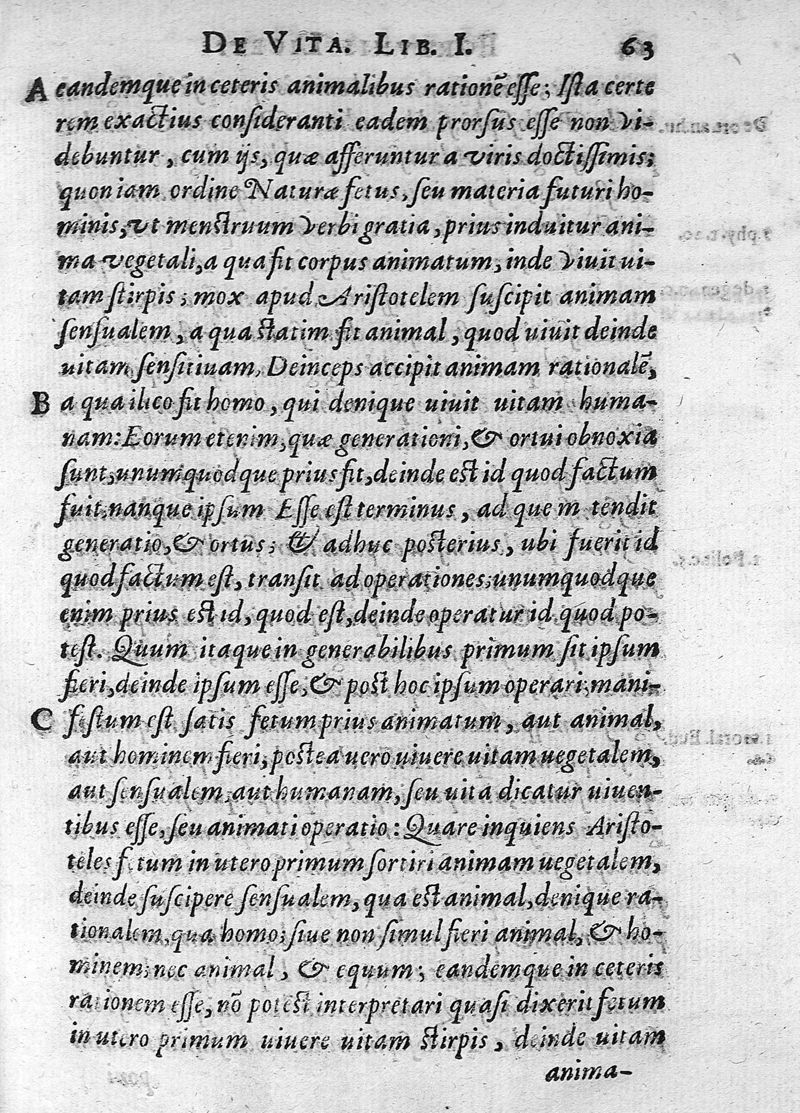 DE VITA. LIB. I. 63
A eandemque in ceteris animalibus rationẽ esse; Ista certe
rem exactius consideranti eadem prorsus esse non vi-
debuntur, cum ijs, quæ afferuntur a viris doctissimis;
quoniam ordine Naturæ fetus, seu materia futuri ho-
minis, vt menstruum verbi gratia, prius induitur ani-
ma vegetali, a qua fit corpus animatum, inde viuit ui-
tam stirpis; mox apud Aristotelem suscipit animam
sensualem, a qua statim fit animal, quod uiuit deinde
uitam sensitiuam. Deinceps accipit animam rationalẽ,
B a qua ilico fit homo, qui denique uiuit uitam huma-
nam: Eorum etenim, quæ generationi, & ortui obnoxia
sunt, unumquodque prius fit, deinde est id quod factum
fuit, nanque ipsum Esse est terminus, ad quem tendit
generatio, & ortus; & adhuc posterius, ubi fuerit id
quod factum est, transit ad operationes; unumquodque
enim prius est id, quod est, deinde operatur id quod po-
test. Quum itaque in generabilibus primum sit ipsum
fieri, deinde ipsum esse, & post hoc ipsum operari; mani-
C festum est satis fetum prius animatum, aut animal,
aut hominem fieri, postea uero uiuere uitam uegetalem,
aut sensualem, aut humanam, seu uita dicatur uiuen-
tibus esse, seu animati operatio: Quare inquiens Aristo-
teles fetum in utero primum sortiri animam uegetalem,
deinde suscipere sensualem, qua est animal, denique ra-
tionalem, qua homo; siue non simul fieri animal, & ho-
minem; nec animal, & equum; eandemque in ceteris
rationem esse, nõ potest interpretari quasi dixerit fetum
in utero primum uiuere uitam stirpis, deinde uitam
anima-